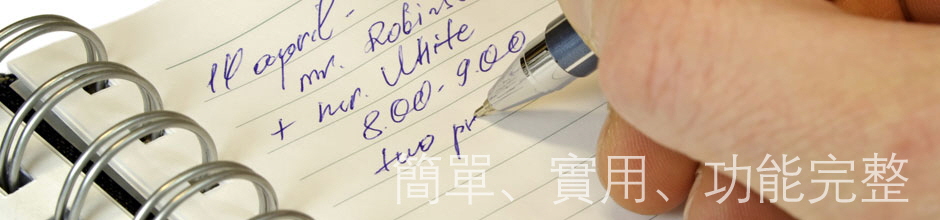 14 april -
mr. Robins
+ mr. White
8.00 - 9.00
two pr
簡單、實用、功能完整